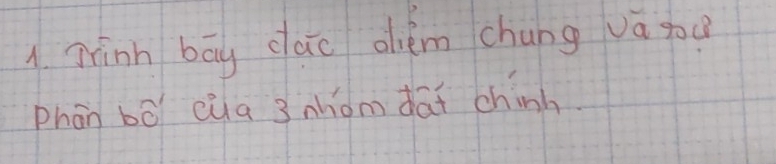 1. Trình bày đặc điểm chung và sự
phân bố của 3 nhóm đất chính.